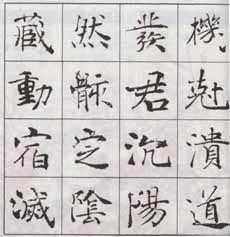 機尅潰道
發君沉陽
然骸定陰
藏動宿滅